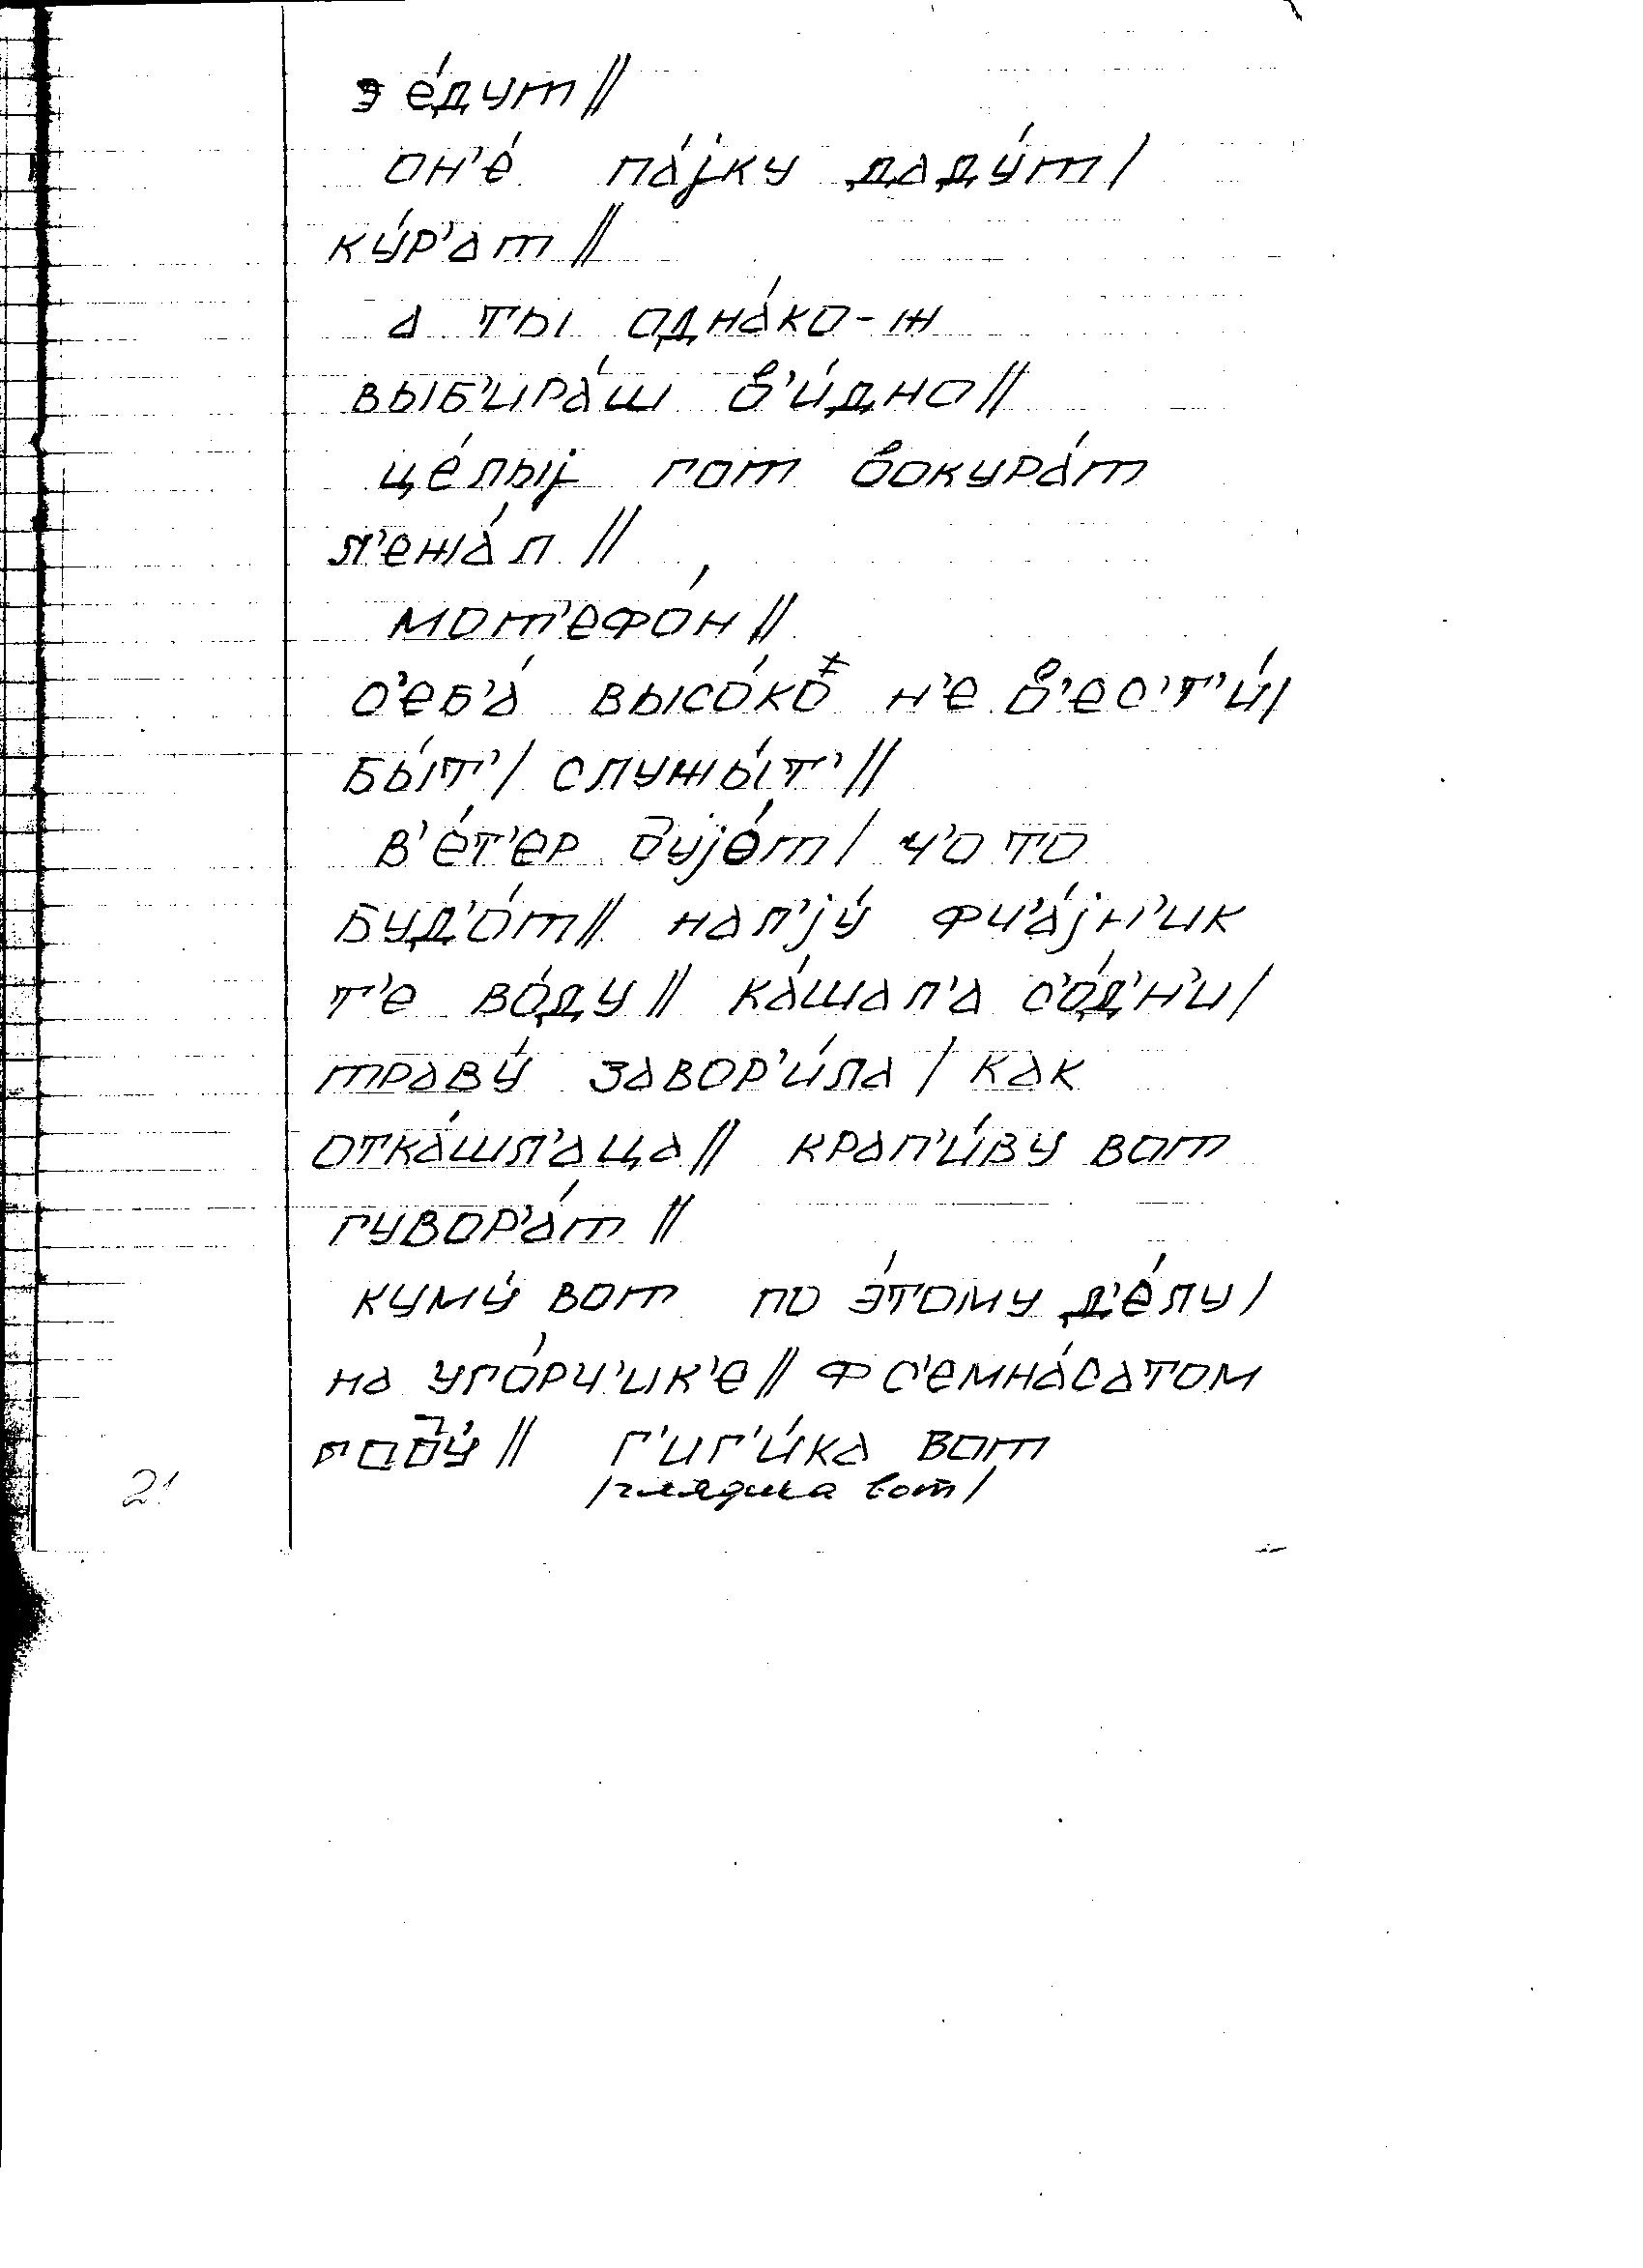 э е́дут //
он'е́ па́jку даду́т /
ку́р'ат //
а ты одна́ко-ж
выб'ира́ш в'и́дно //
це́лыj гот вокура́т
л'ежа́л //
мот'ефо́н //
с'еб'а́ высо́ко н'е в'ес'т'и́ /
бы́т' / служы́т' //
в'е́т'ер дуjо́т / ч'о то
буд'о́т // нал'jу́ фч'а́jн'ик
т'е во́ду // ка́шал'а с'о́д'н'и /
траву́ завор'и́ла / как
отка́шл'аца // крап'и́ву вот
гувор'а́т //
куму́ вот по э́тому д'е́лу /
на уго́рч'ик'е // ф с'емна́сатом
году́ // г'иг'и́ка вот
/глядика вот/
21